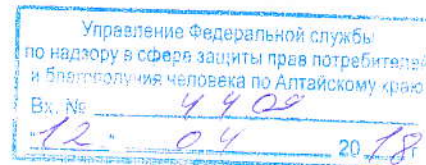 Управление Федеральной службы
по надзору в сфере защиты прав потребителей
и благополучия человека по Алтайскому краю
Вх. № 4409
"12" 04 2018 г